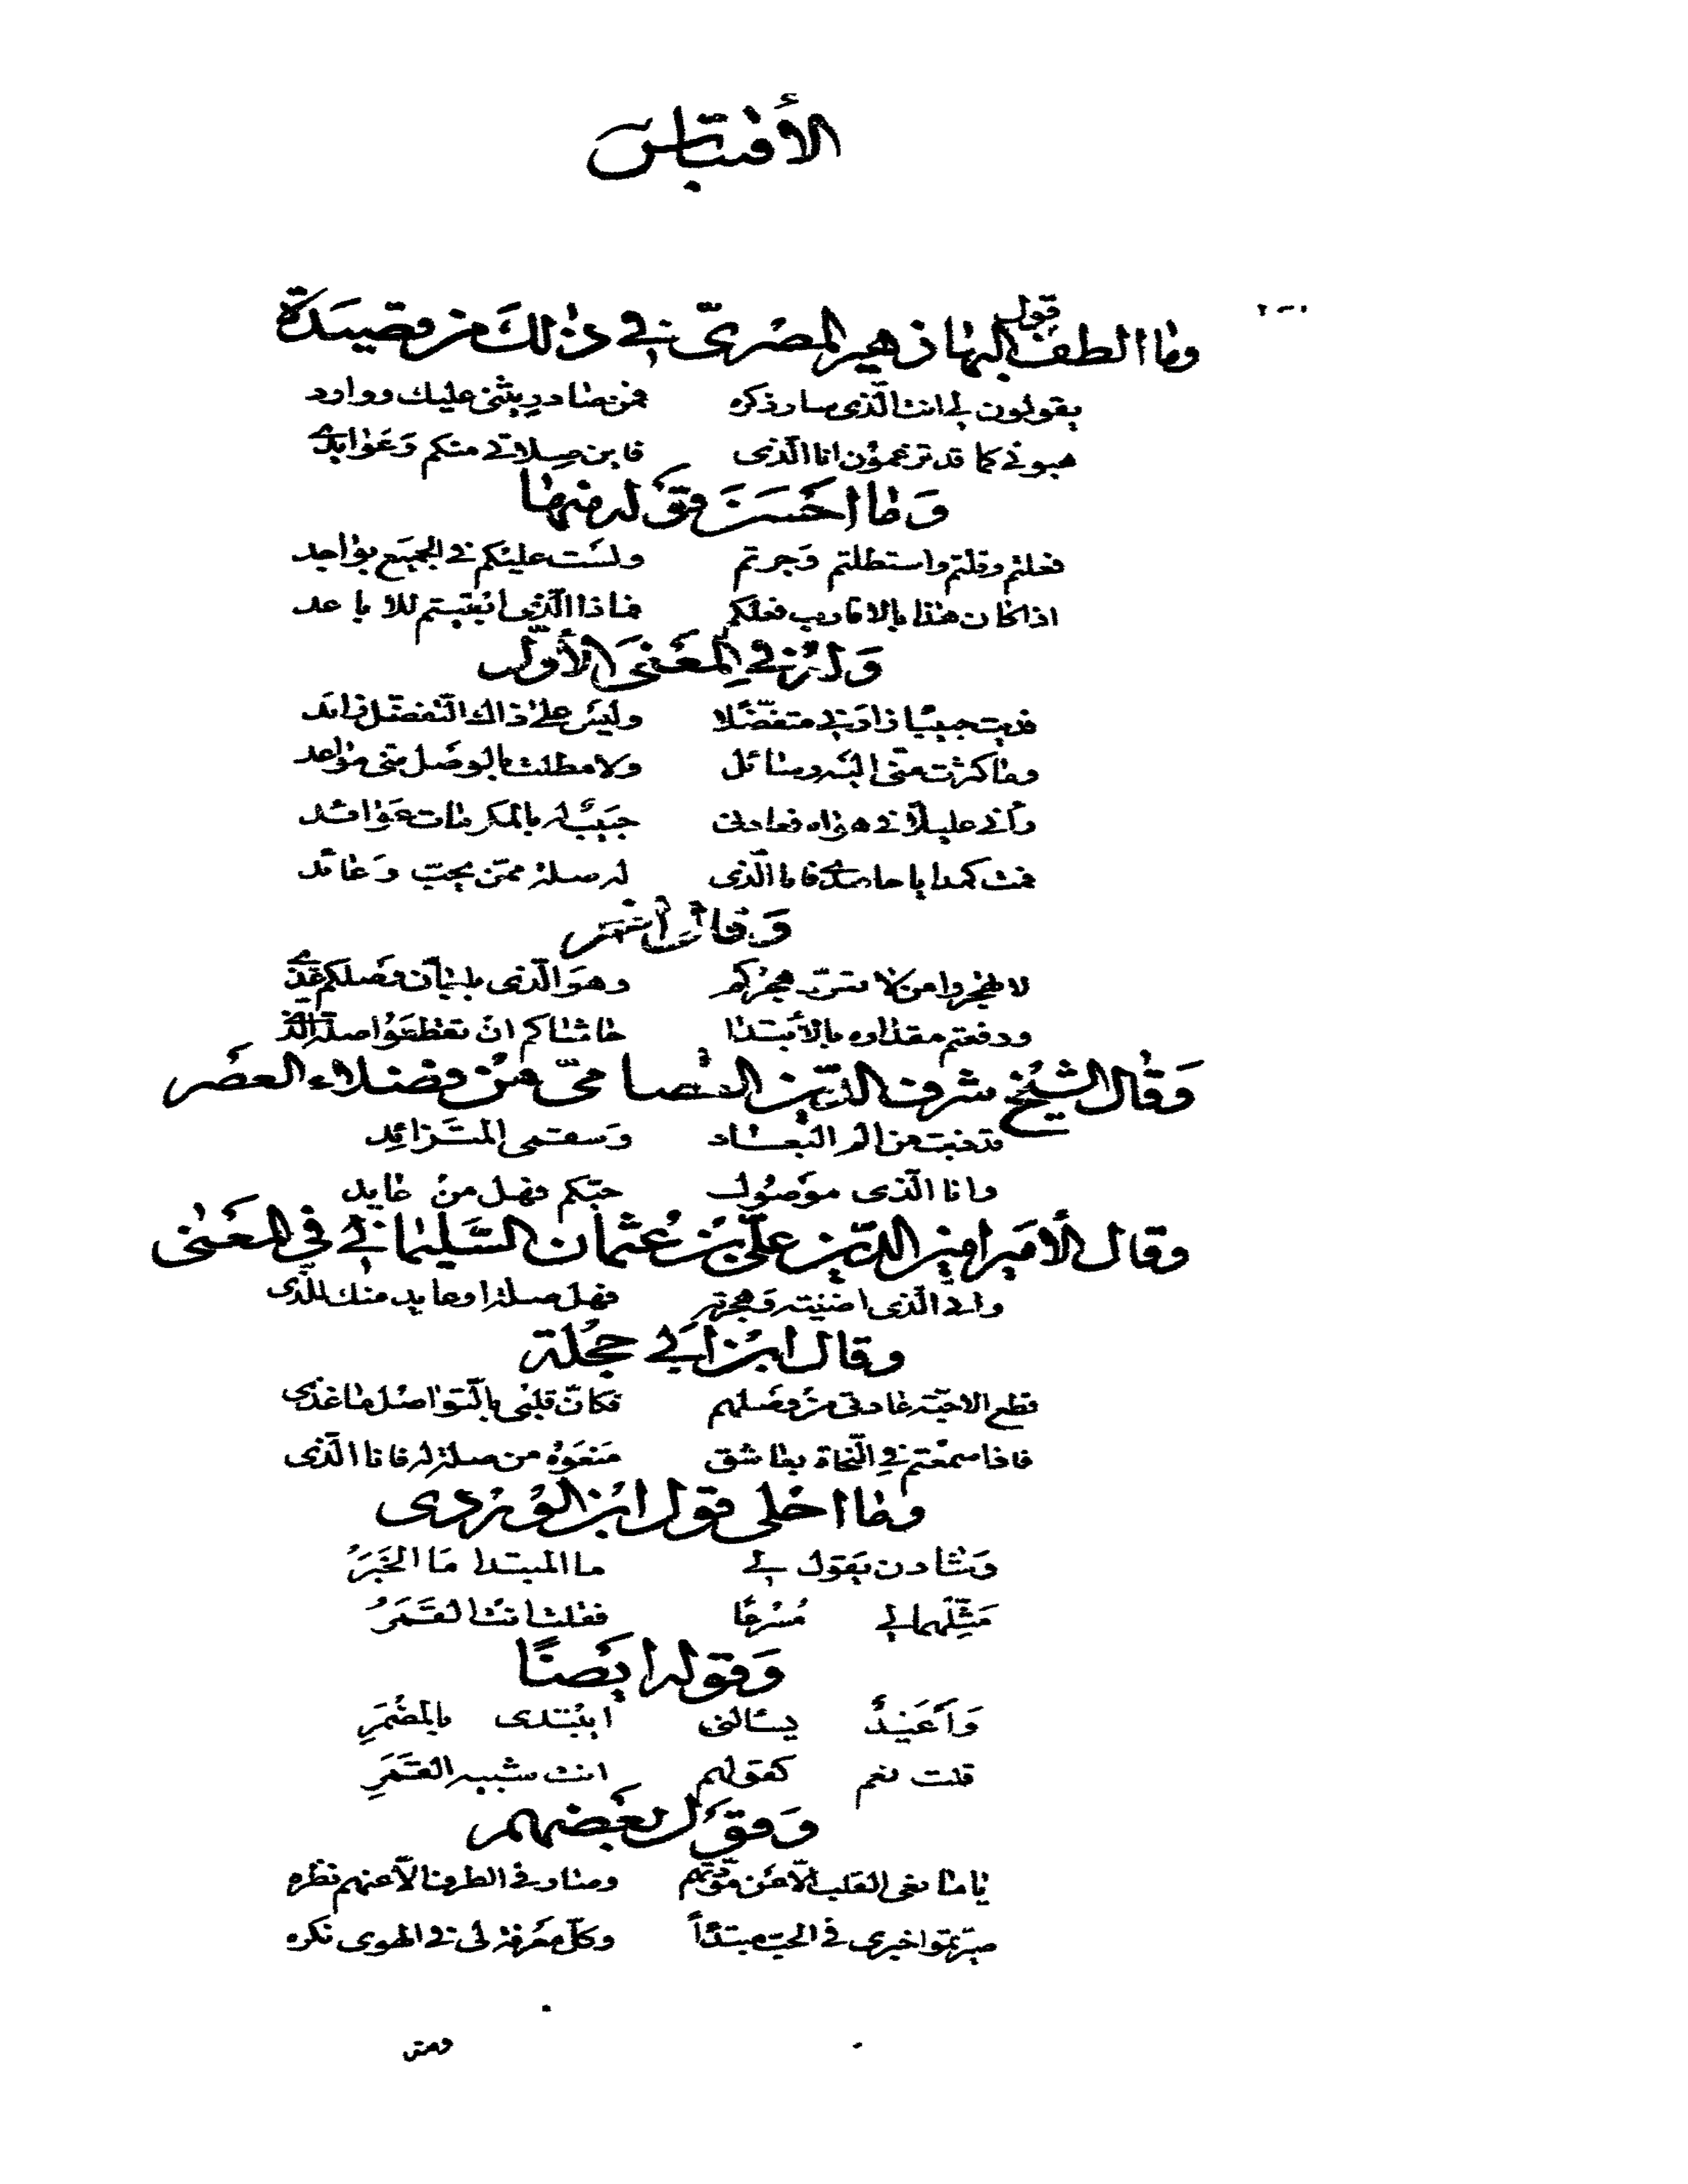 الأقتباس
وما الطف قول البها زهير المصرىّ في ذلك من قصيدة
يقولون لي انت الّذى سار ذكره فمن صادرٍ يثنى عليك ووارد
هبونى كما قد تزعمون انا الّذى فاين صلاتي منكم وَعَوايدى
وَما احسَنَ قوله منها
فعلتم وقلتم واستطلتم وَجرتم ولست عليكم في الجميع بواجد
اذا كان هذا بالاقارب فعلكم فماذا الّذى ابقيتم للاباعد
وَله في المعنىَ الأوّل
فديت حبيبًا زادنى متفضّلا وليس على ذاك التّفضّل زائد
وما كثرت منّى اليه وسائل ولا مطلت بالوصل منّى مواعد
رأنى عليلًا في هواه فعادنى حبيبٌ له بالمكرمات عوائد
فمت كمدا يا حاسدى فانا الّذى له صلة ممّن يحبّ وَعائد
وَقال اخر
لا تهجروا من لا تعوّد هجركم وهو الّذى بلبان وصلكم غذى
ورفعتم مقداره بالأبتدا حاشاكم ان تقطعوا صلة الّذى
وَقال الشيخ شرف الدّين العصامىّ من فضلاء العصر
قد ذبت من الم البعاد وَسقمى المتزائد
وانا الّذى موصول حبّكم فهل من عايد
وقال الأمير امين الدّين علىّ بن عثمان السّليمانى في المعنى
وانى الّذى اضنيته وَهجرته فهل صلة او عايد منك للّذى
وقال ابن ابى حجلة
قطع الاحبّة عادتى من وصلهم فكانّ قلبى بالتّواصل ما غذى
فاذا سمعتم في النّحاة بعاشق منعوه من صلة له فانا الّذى
وما احلى قول ابن الوردى
وَشادن يقول لي ما المبتدا مَا الخَبَرُ
مَثِّلهما لي مُسْرعًا فقلت انت القَمَرُ
وَقوله ايضًا
وَاَغيَدٌ يسألنى ابتدى بالمضمَرِ
قلت نعم كقولهم انت شبيه القَمَرِ
وَقول بعضهم
ياما نهى القلب الّا عن مودّتهم وصاد في الطرف الّا عنهم نظره
صيّرتموا خبرى في الحب مبتدًأ وكلّ معرفة لى في الهوى نكره